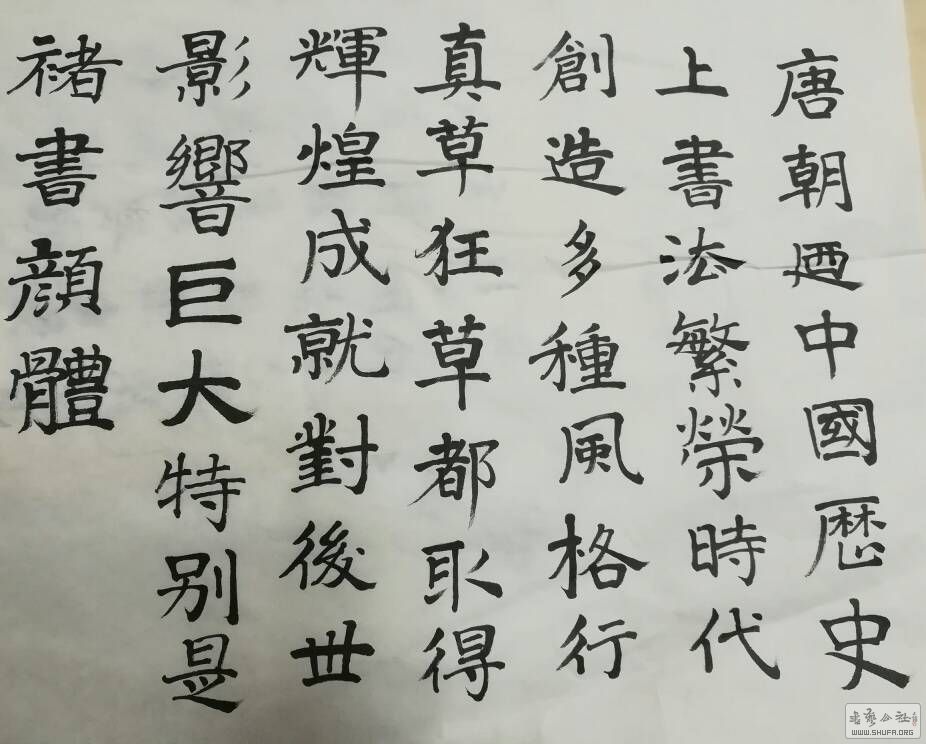 唐朝廼中國歷史
上書法繁榮時代
創造多種風格行
真草狂草都取得
輝煌成就對後世
影響巨大特别是
禇書顔體
書藝公社
WWW.SHUFA.ORG